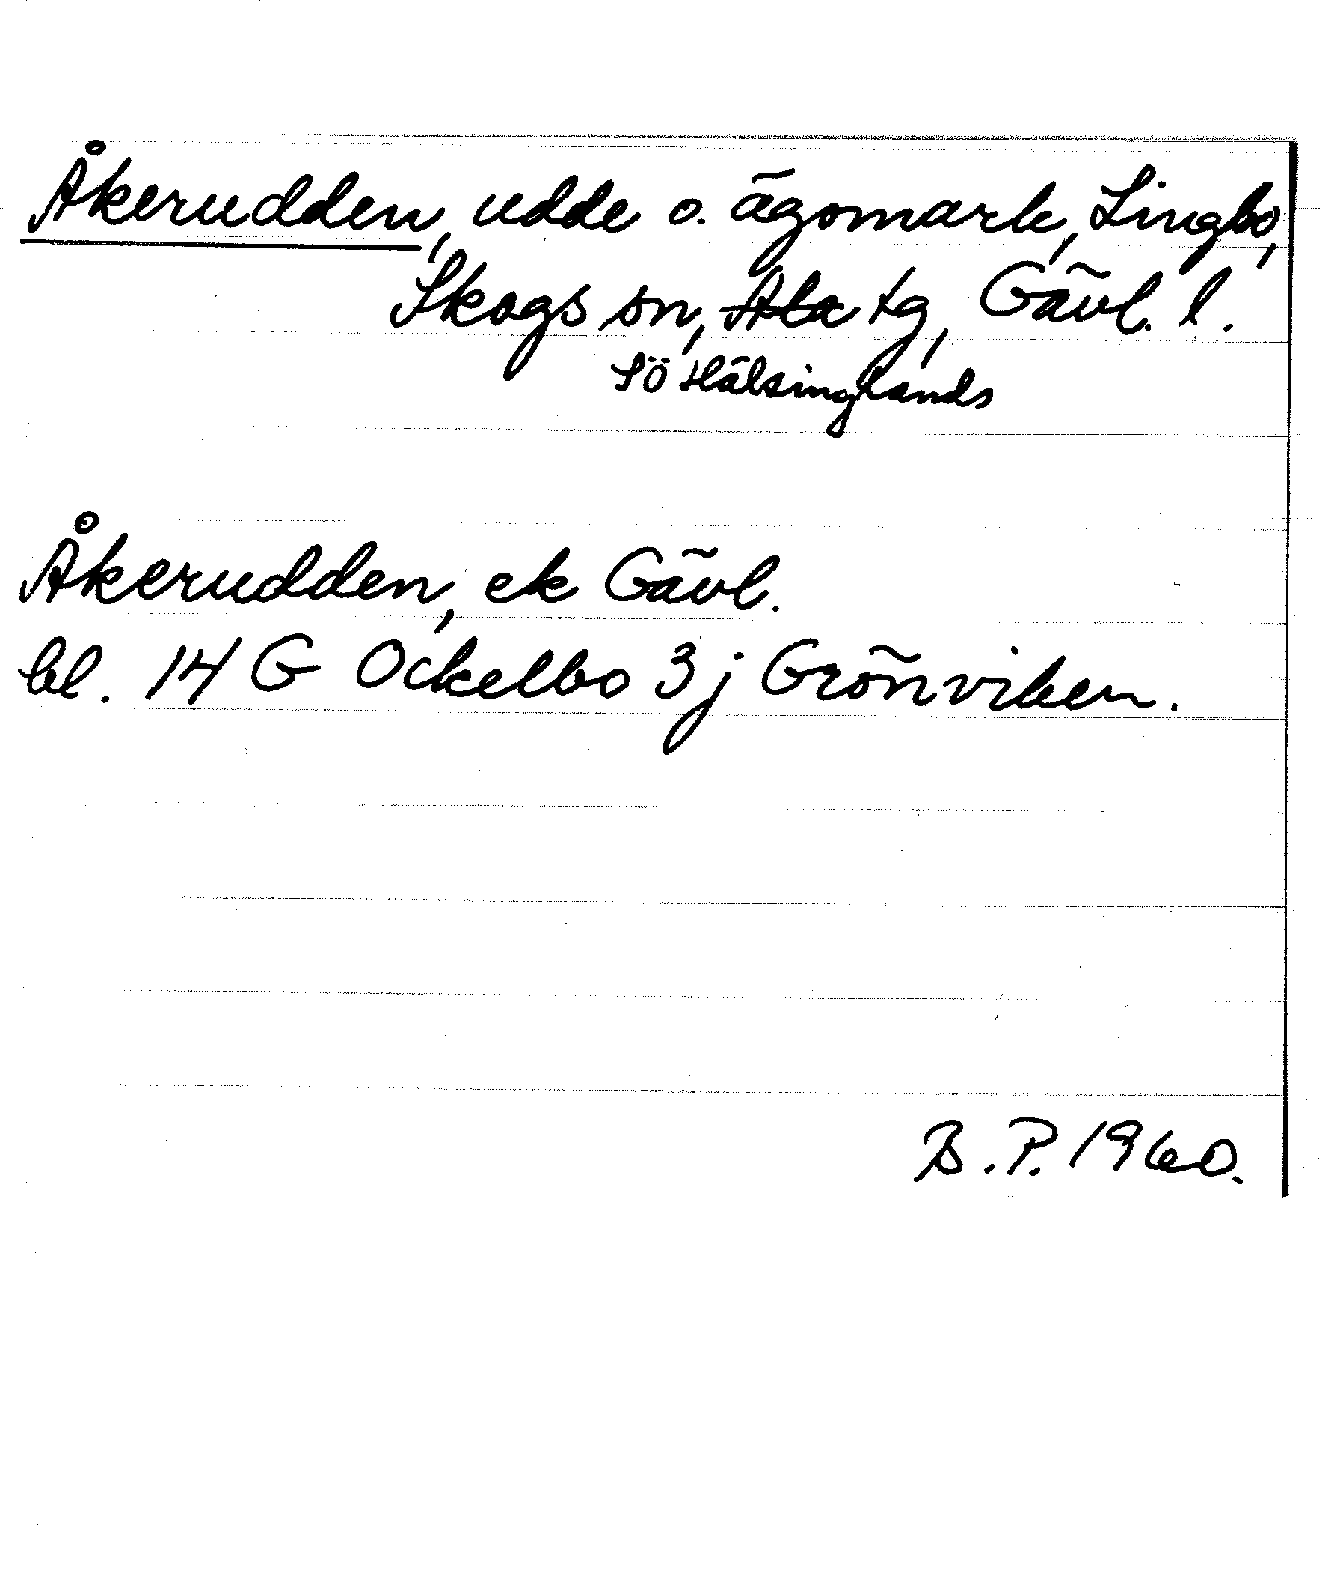 Åkerudden, udde o. ägomark, Lingbo,
Skogs sn, Ala tg, Gävl. l.
SÖ Hälsinglands
Åkerudden, ek Gävl.
bl. 14 G Ockelbo 3 j Grönviken.
B.P. 1960.